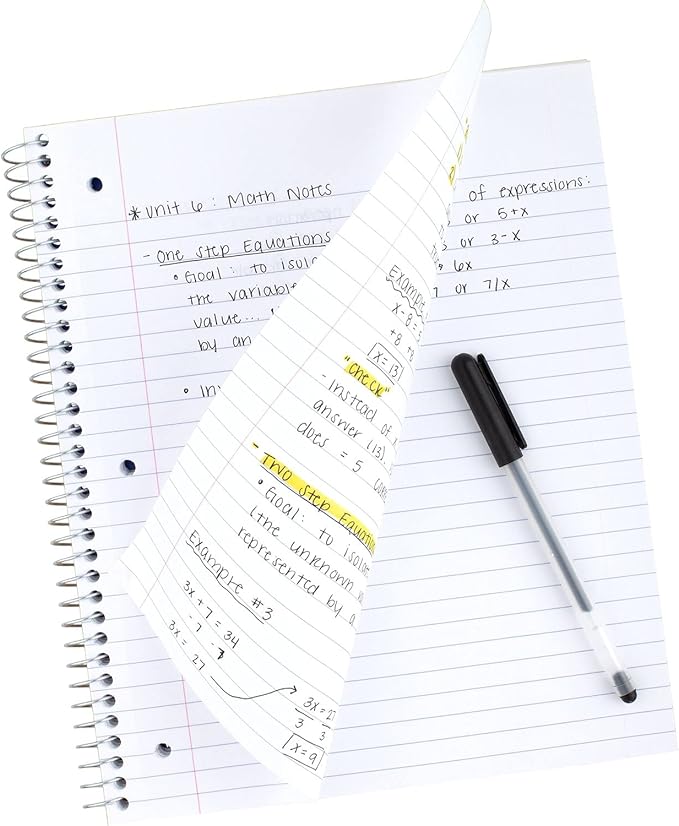 * Unit 6 : Math Notes
- One Step Equations
• Goal : to isol
the variable
value...
by an
• Inv
of expressions:
or 5+x
or 3-x
6x
7 or 7/x
Example
x-8=5
+8 +8
x=13
"check"
- instead of
answer (13)
does = 5
- Two Step Equation
• Goal: to isol
(the unknown
represented by a
Example #3
3x + 7 = 34
- 7 - 7
3x = 27
3x=27
3 3
x=9